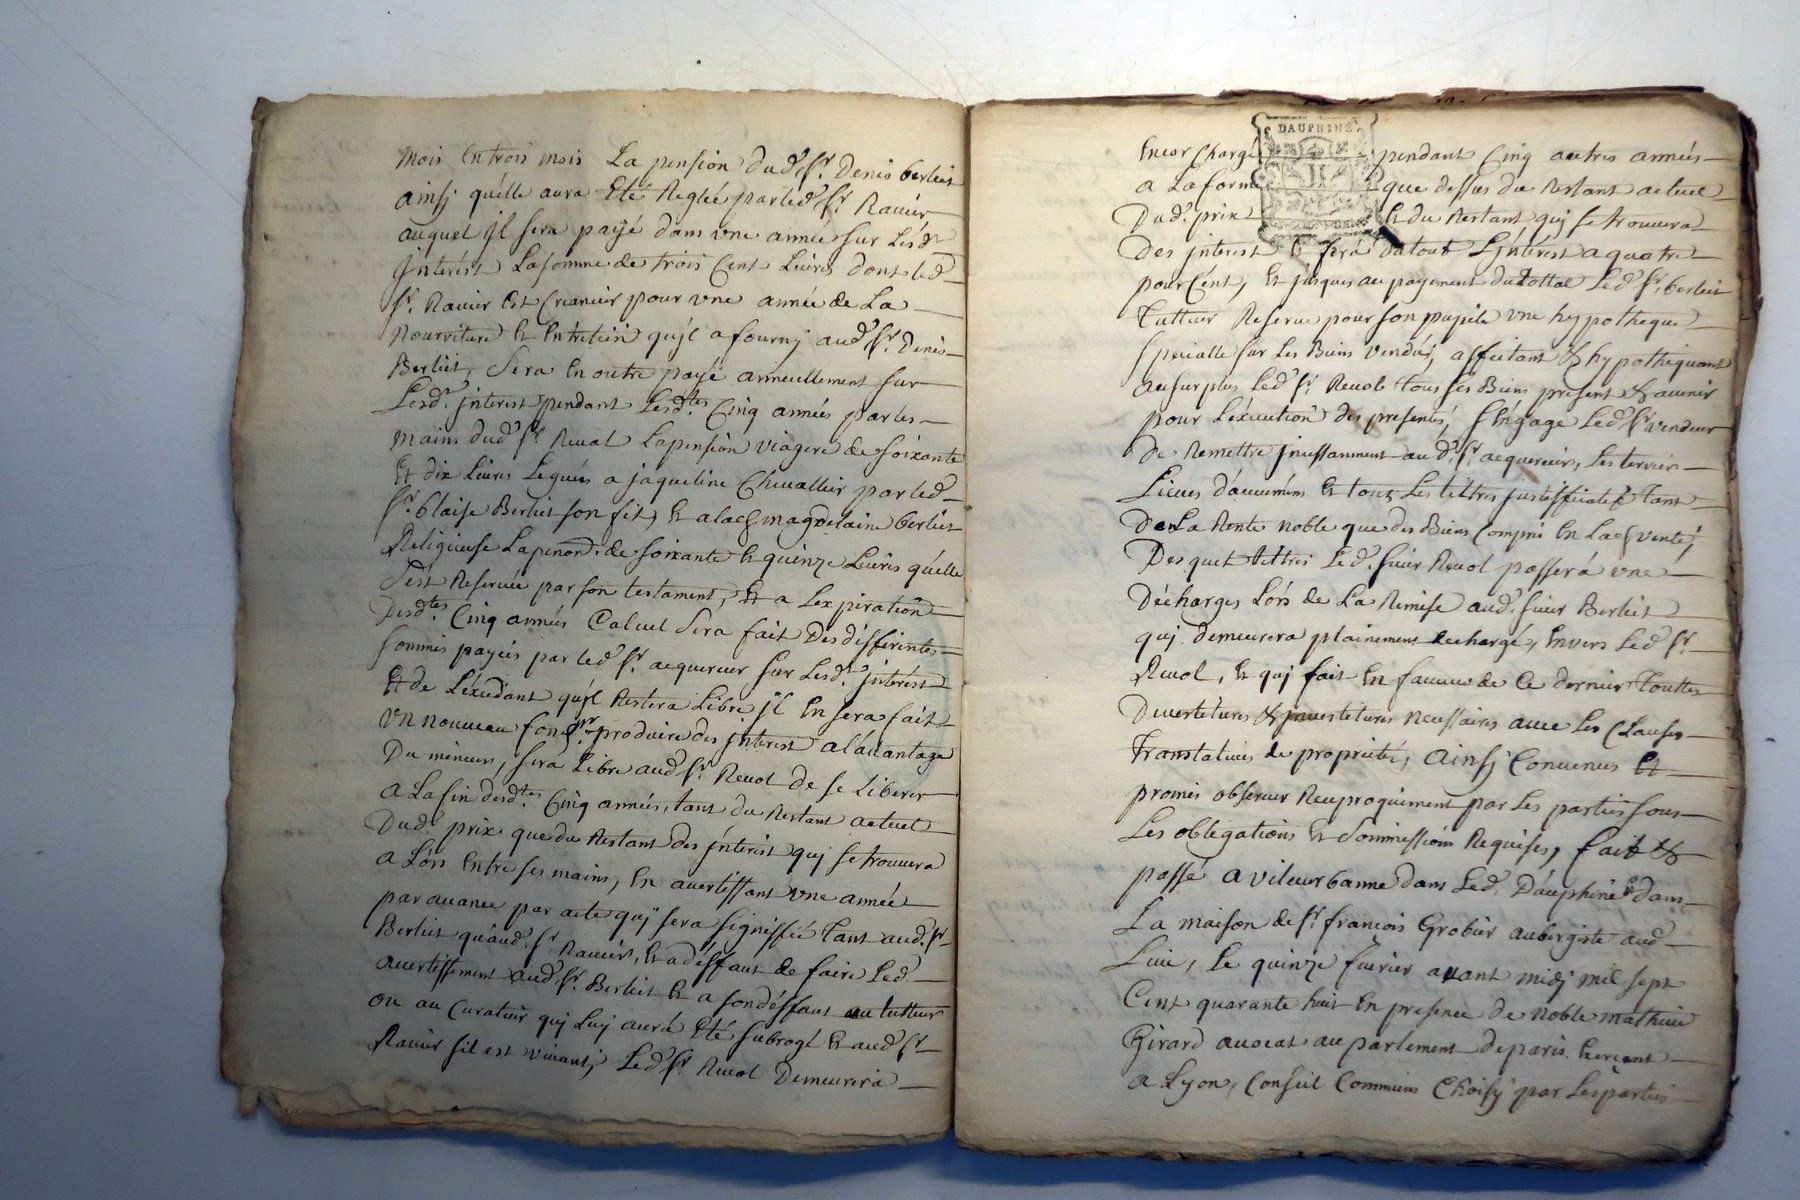 mois En trois mois La pension dud. Sr. Denis berliet
ainsj quélle aura Eté Reglée par led. Sr. Ravier
auquel jl sera payé dans vne année sur Lesd.
jnterest La somme de trois Cent Livres dont led.
Sr. Ravier Est Creancier pour vne année de La
Nourriture Et Entretien qu'jl a fournj aud. Sr. Denis
Berliet, Sera En outre payé annuellement sur
Lesd. jnterest pendant Lesdtes. Cinq années par les
mains dud. Sr. Revol La pension viagere de soixante
Et dix Livres Leguée a jaqueline Chevallier par led.
Sr. blaise Berliet son fils, Et a lad. magdelaine berliet
Religieuse La penon. de soixante Et quinze Livres quélle
S'est Reservée par son testament, Et a Lexpiration
Desdtes. Cinq années Calcul Sera fait Des différentes
sommes payées par led. Sr. acquereur sur Lesd. jnterest
Et de Léxcédant qu'jl Restera Libre jl En sera fait
vn nouveau fond pr. produire des jnterest a l'avantage
Du mineur, sera Libre aud. Sr. Revol de se Liberer
a La fin desdtes. Cinq années, tant du Restant actuel
Dud. prix que du Restant des jnterest quj se trouvera
a Lors Entre ses mains, En avertissant vne année
par avance par acte quj sera signiffié Tant aud. Sr.
Berliet qu'aud. Sr. Ravier, Et a deffaut de faire Led.
avertissement aud. Sr. Berliet Et a son déffaut au tutteur
ou au Curateur quj Luj aura Eté subrogé Et aud. Sr.
Ravier sil est vivant, Led. Sr. Revol Demeurera
Encor Chargé pendant Cinq autres années
a La forme que dessus du Restant actuel
Dud. prix Et du Restant quj se trouvera
DAUPHINÉ
Des jnterest Et fera du tout L'jntérest a quatre
pour Cent, Et jusques au payement du tottal Led. Sr. berliet
Tutteur Reserve pour son pupile vne hypotheque
Specialle sur Les Biens vendus, affectant & hypothequant
au surplus Led. Sr. Revol tous ses Biens present & avenir
pour L'éxecution des presentes, S'Engage Led. Sr. vendeur
De Remettre jncessamment au d. Sr. acquereur, Les terriers
Lieves d'Et tous Les tiltres justifficatifs Tant
De La Rente noble que des Biens Compris En lad. vente,
Desquels tiltres Led. sieur Revol passera vne
Décharges Lors de La Remise aud. sieur Berliet
quj demeurera plainement dechargé, Envers Led. Sr.
Revol, Et quj fait En faveur de Ce dernier Touttes
Devestitures & jnvestitures necessaires avec Les Clauses
Translatives de proprieté, Ainsj Convenus Et
promis observer Reciproquement par Les parties sous
Les obligations Et Soumissions Requises, fait &
passé a vileurbanne dans Led. Dauphiné & dans
La maison de Sr. françois Grobier aubergiste aud.
Lieu, Le quinze fuvrier avant midj mil sept
Cent quarante huit En presence de Noble mathieu
Girard avocat au parlement de paris Exerçant
a Lyon, Conseil Commun Choisj par Les parties